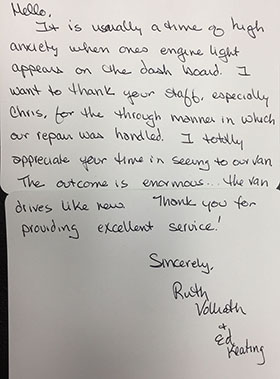 Hello,
It is usually a time of high
anxiety when ones engine light
appears on the dash board. I
want to thank your staff, especially
Chris, for the through manner in which
our repair was handled. I totally
appreciate your time in seeing to our van
The outcome is enormous... the van
drives like new. Thank you for
providing excellent service!
Sincerely,
Ruth
Vollrath
+
Ed
Keating